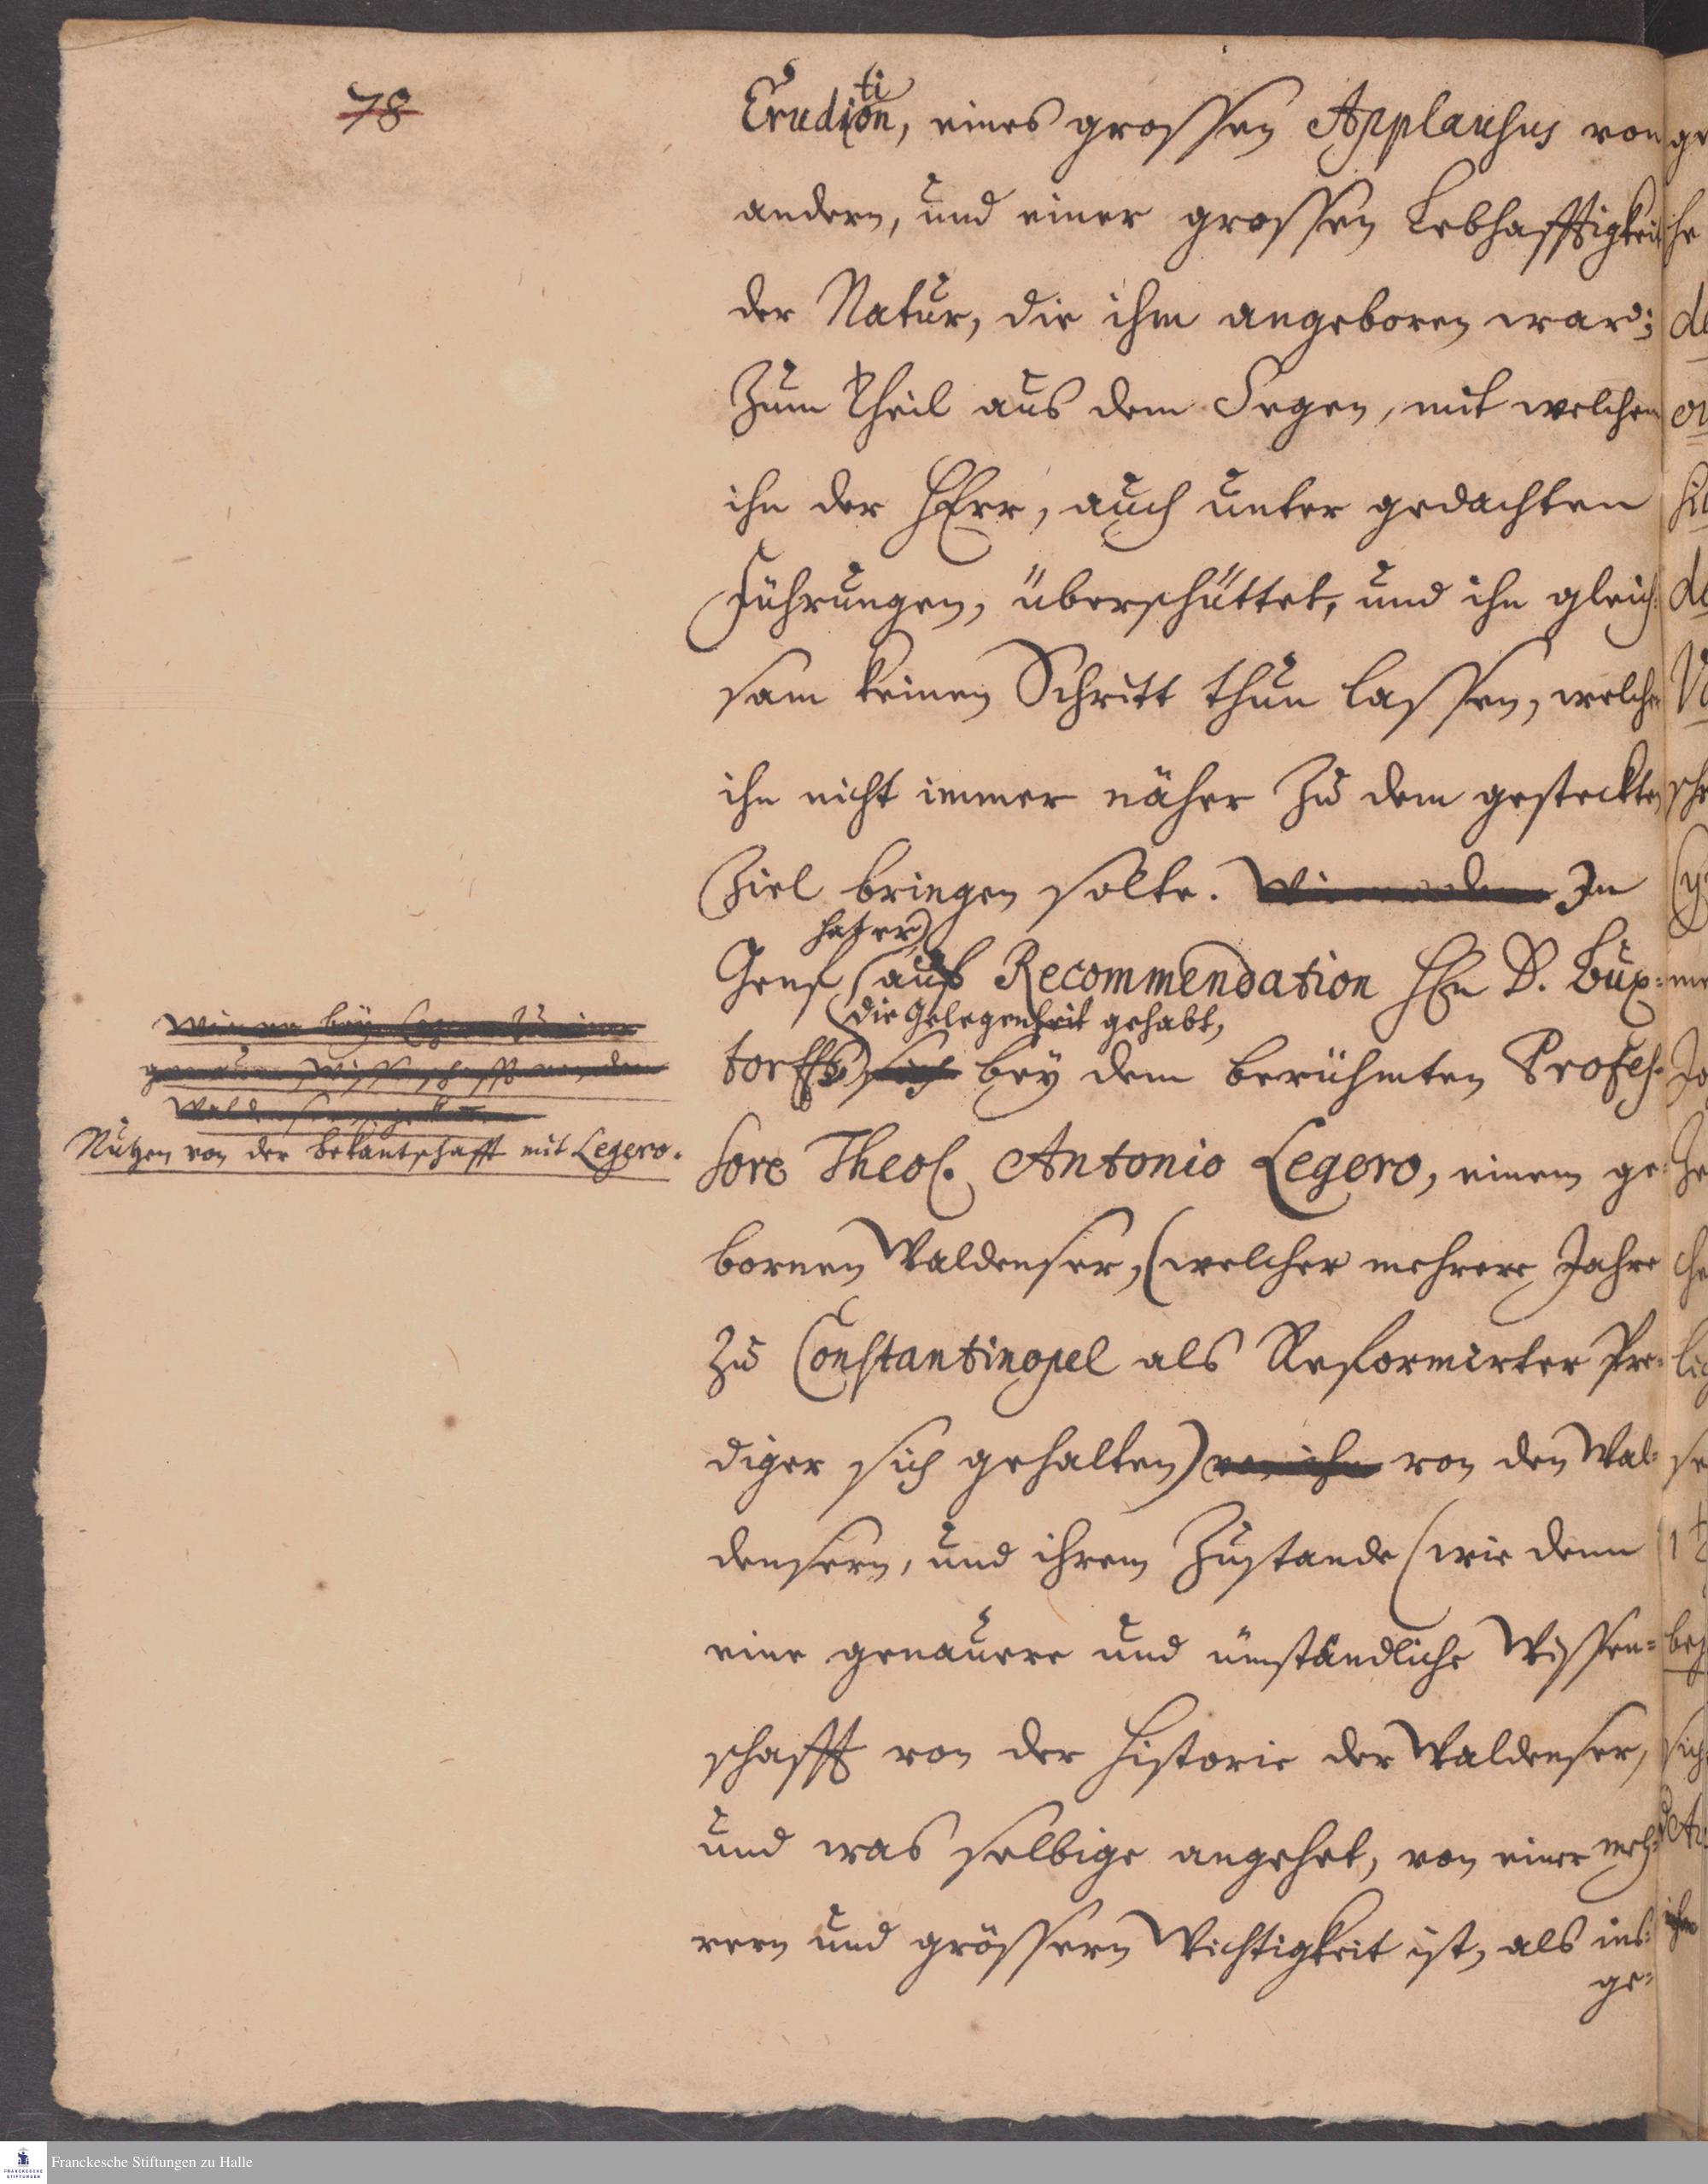 78
Erudition, eines grossen Applausus von
andern, und einer grossen Lebhafftigkeit
der Natur, die ihm angeboren ward;
Zum Theil aus dem Segen, mit welchem
ihn der HErr, auch unter gedachten
Führungen, überschüttet, und ihn gleich-
sam keinen Schritt thun lassen, welcher
ihn nicht immer näher zu dem gesteckten
Ziel bringen solte. In
hat er
Genf (auf Recommendation HEn D. Bux-
die Gelegenheit gehabt,
torffs) sich bey dem berühmten Profes-
sore Theol. Antonio Legero, einem ge-
bornen Waldenser, (welcher mehrere Jahre
zu Constantinopel als Reformirter Pre-
diger sich gehalten) von ihm von den Wal-
densern, und ihrem Zustande (wie denn
eine genauere und umständliche Wissen-
schafft von der Historie der Waldenser,
und was selbige angehet, von einer meh-
rern und grössern Wichtigkeit ist, als ins-
ge-
Wie er bey Legero zu einer
genauern Wissenschafft von den
Waldensern
Nutzen von der Bekantschafft mit Legero.
Franckesche Stiftungen zu Halle